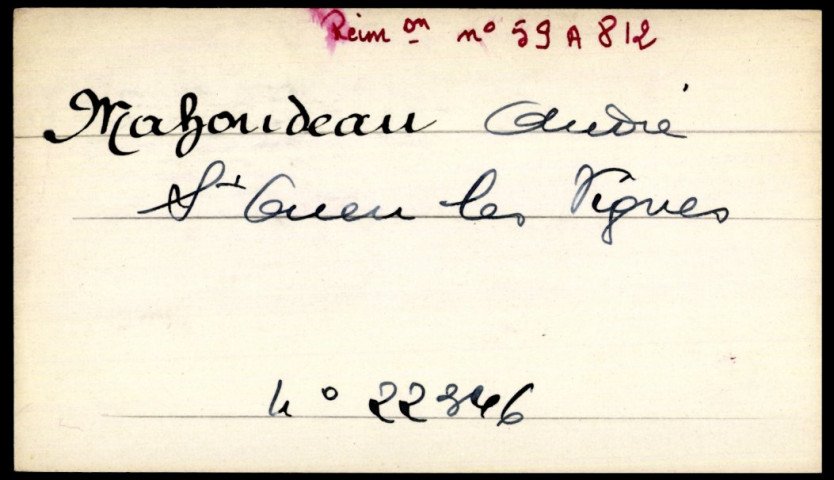 Reim on n° 59 A 812
Mahoudeau André
St Ouen les Vignes
n° 22846